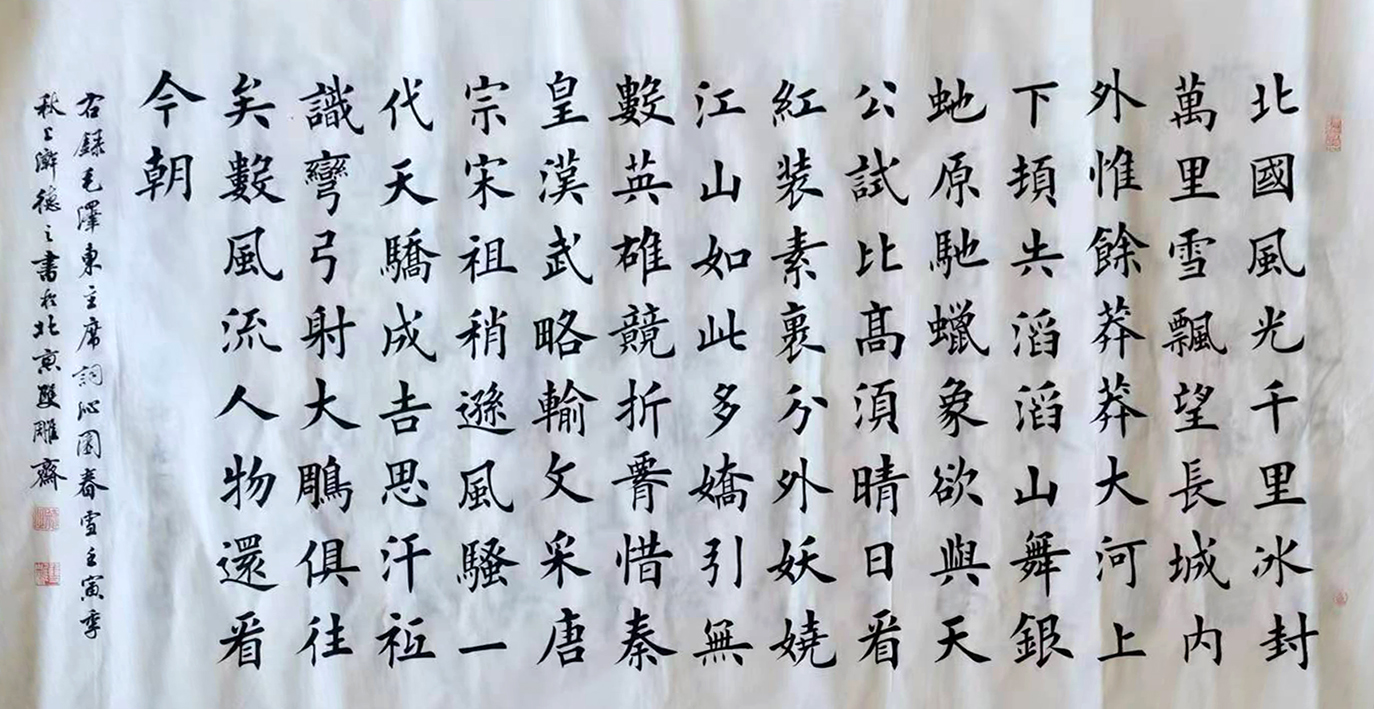 北國風光千里冰封
萬里雪飄望長城内
外惟餘莽莽大河上
下頓失滔滔山舞銀
虵原馳蠟象欲與天
公試比髙湏晴日看
紅装素裹分外妖嬈
江山如此多嬌引無
數英雄競折惜秦
皇漢武略輸文采唐
宗宋祖稍遜風騷一
代天驕成吉思汗衹
識彎弓射大鵰俱往
矣數風流人物還看
今朝
右録毛澤東主席詞沁園春雪壬寅季
秋上澣德之書於北京雙雕齋